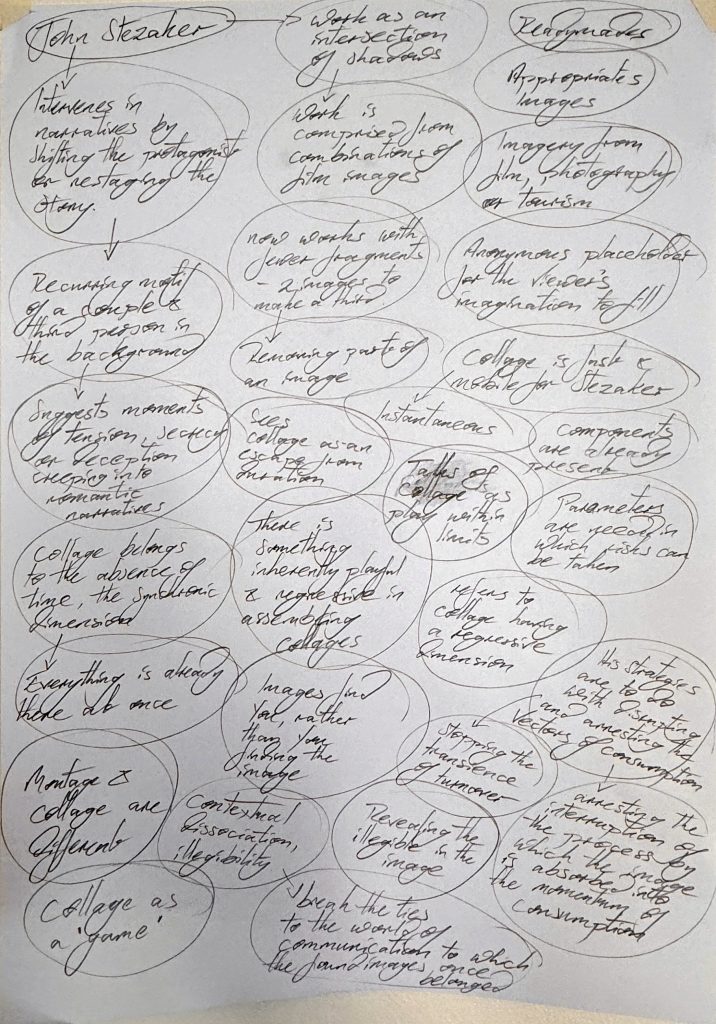 John Stezaker
Work as an
intersection
of shadows
Readymades
Appropriates
images
Intervenes in
narratives by
shifting the protagonist
or restaging the
story.
Work is
comprised from
combinations of
film images
Imagery from
film, photography
or tourism
now works with
fewer fragments
- 2 images to
make a third
Anonymous placeholder
for the viewer's
imagination to fill
Recurring motif
of a couple &
third person in
the background
Removing parts of
an image
Collage is fast &
mobile for Stezaker
Instantaneous
Components
are already
present
Suggests moments
of tension, secrecy
or deception
creeping into
romantic
narratives
Sees
collage as an
escape from
duration
Talks of
collage as
play within
limits
Parameters
are needed in
which risks can
be taken
Collage belongs
to the absence of
time, the synchronic
dimension
There is
something
inherently playful
& regressive in
assembling
collages
refers to
collage having
a regressive
dimension
His strategies
are to do
with disrupting
and arresting the
vectors of consumption
Everything is already
there at once
Images find
you, rather
than you
finding the
image
Stopping the
transience
of turnover
Montage &
collage are
different
Contextual
dissociation,
illegibility
Revealing the
illegible in the
image
arresting the
interruption of
the process by
which the image
is absorbed into
the momentum of
consumption
Collage as
a 'game'
break the ties
to the world of
communication to which
the found images once
belonged